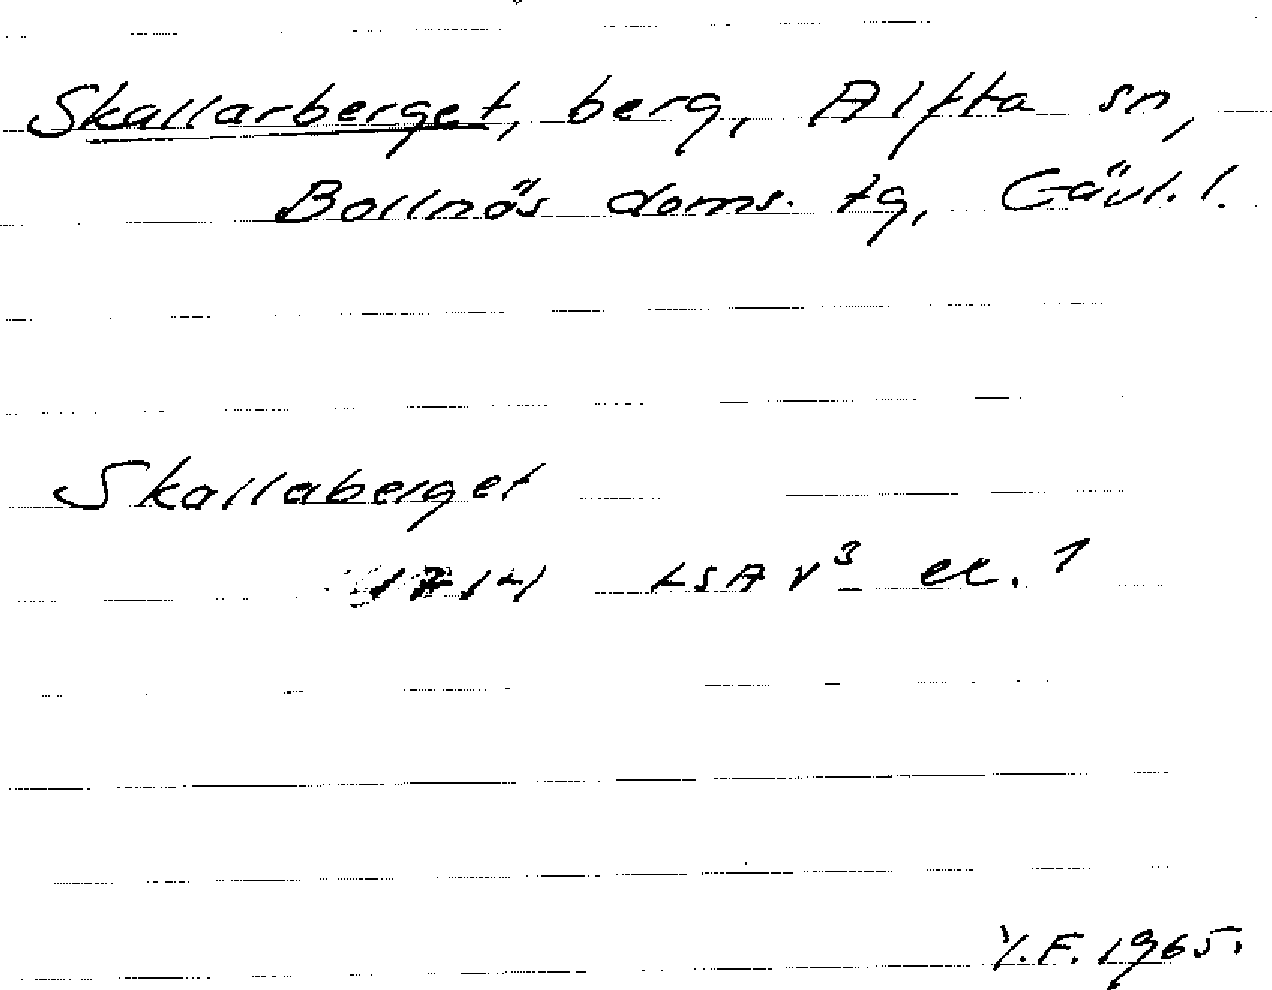 Skallarberget, berg, Alfta sn,
Bollnäs doms. tg, Gävl. l.
Skallaberget
1714 LSA V³ el. 1
Y.F. 1965.